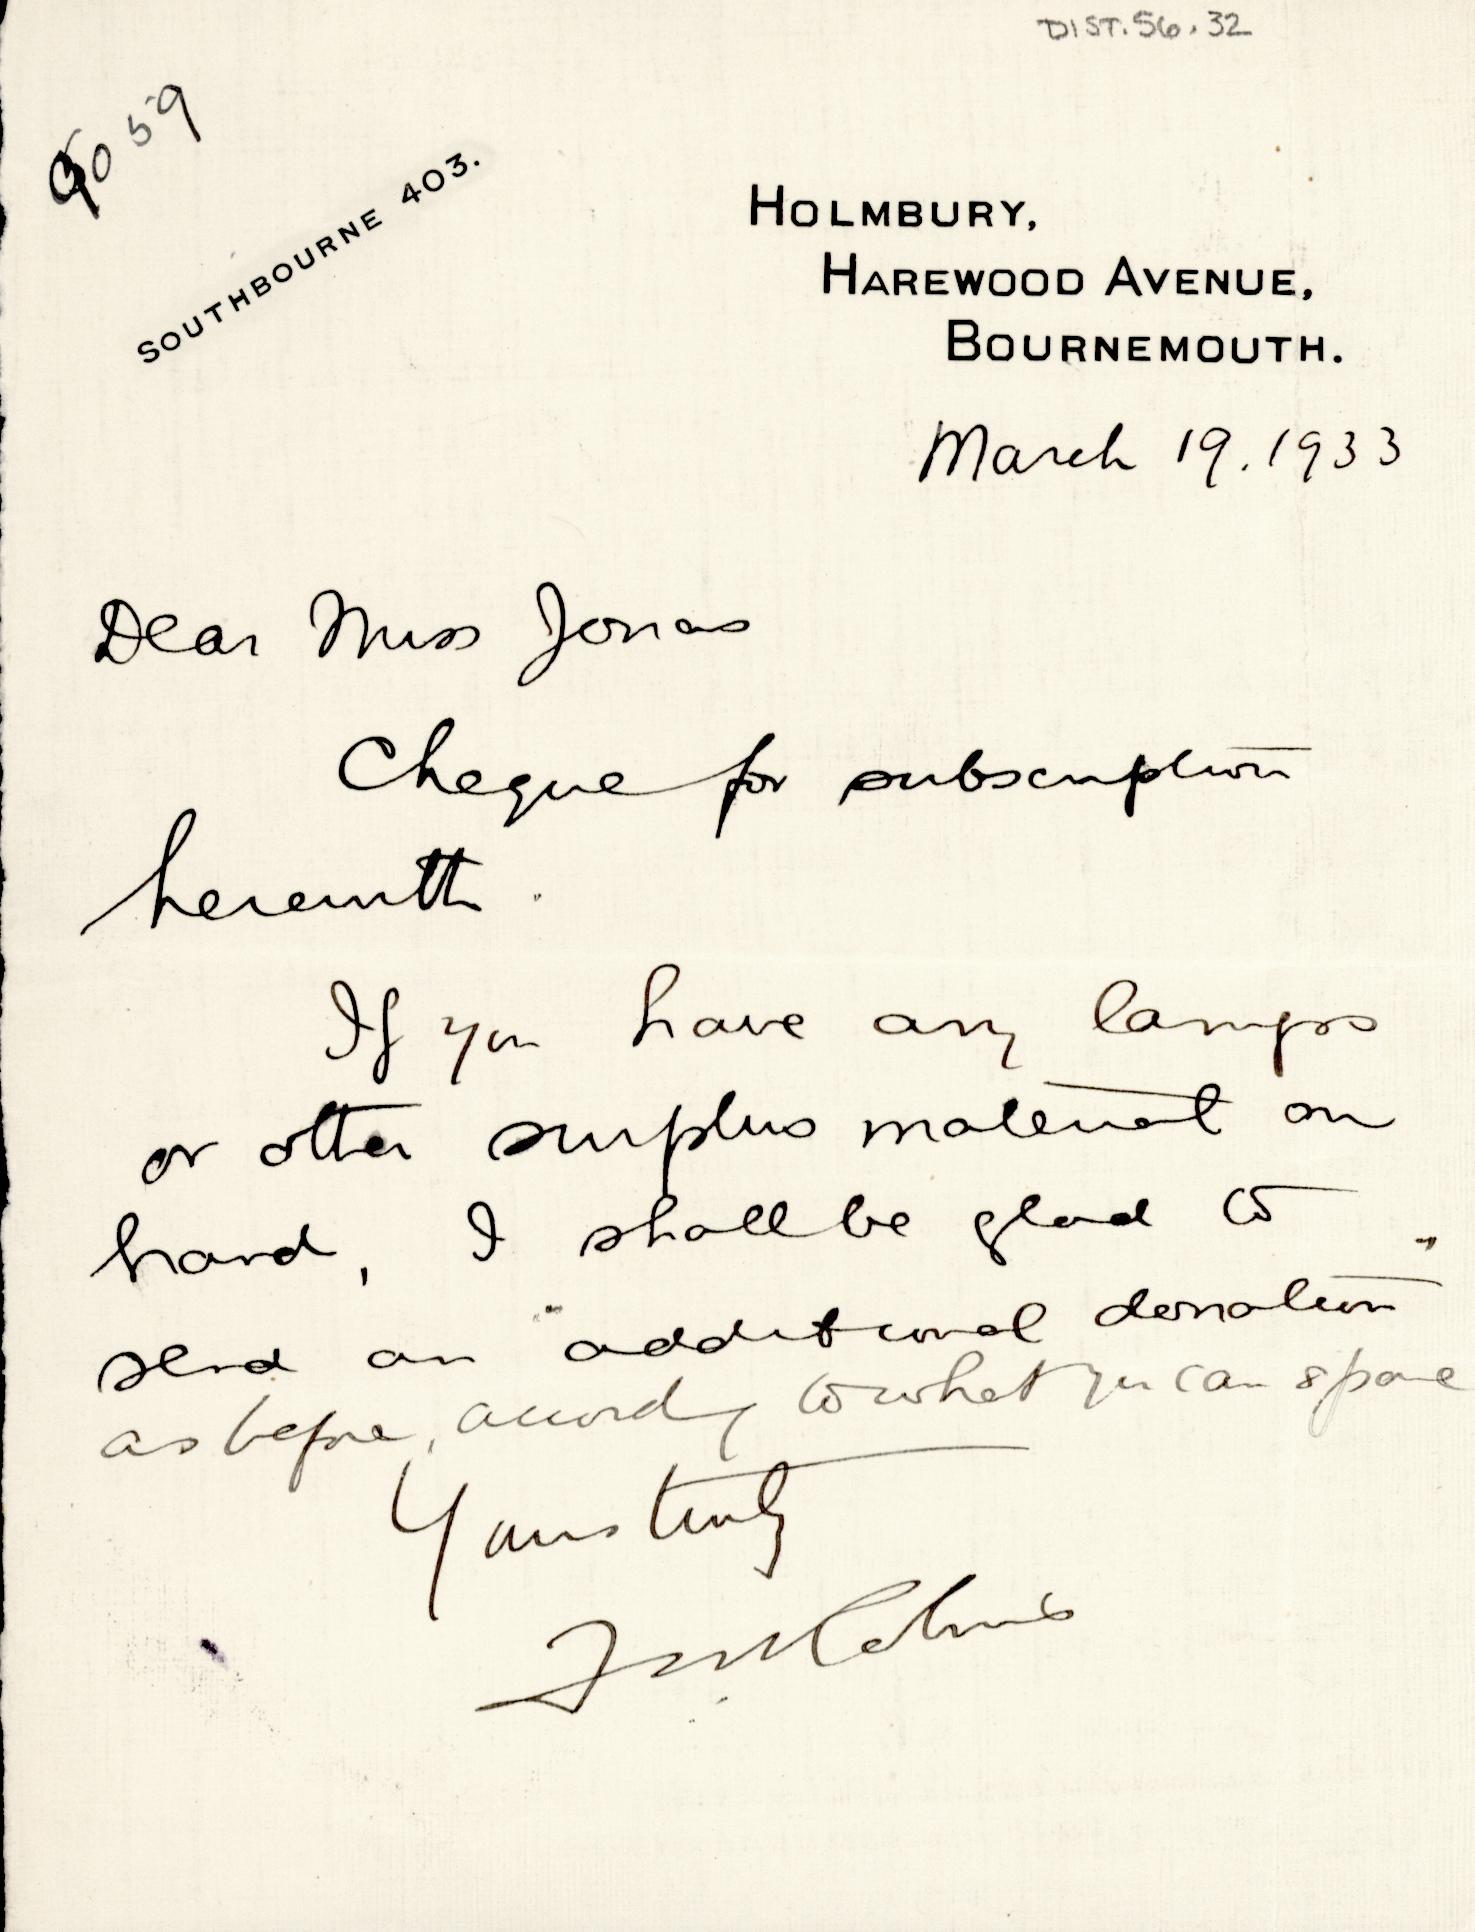 DIST.56.32
SOUTHBOURNE 403.
HOLMBURY,
HAREWOOD AVENUE,
BOURNEMOUTH.
March 19. 1933
Dear Miss Jonas
Cheque for subscription
herewith.
If you have any lamps
or other surplus material on
hand, I shall be glad to
send an "additional donation"
as before, according to what you can spare
Yours truly